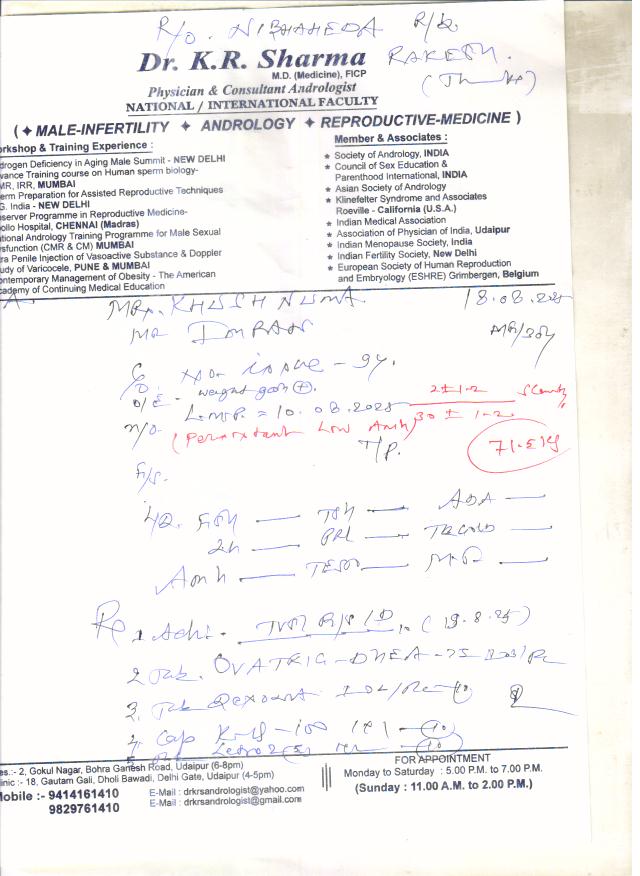 R/o. NIBHAHEDA R/k.
Dr. K.R. Sharma RAKESH.
M.D. (Medicine), FICP
Physician & Consultant Andrologist
NATIONAL / INTERNATIONAL FACULTY
( ✦ MALE-INFERTILITY ✦ ANDROLOGY ✦ REPRODUCTIVE-MEDICINE )
orkshop & Training Experience :
drogen Deficiency in Aging Male Summit - NEW DELHI
vance Training course on Human sperm biology-
MR, IRR, MUMBAI
erm Preparation for Assisted Reproductive Techniques
G. India - NEW DELHI
server Programme in Reproductive Medicine-
ollo Hospital, CHENNAI (Madras)
tional Andrology Training Programme for Male Sexual
sfunction (CMR & CM) MUMBAI
ra Penile Injection of Vasoactive Substance & Doppler
udy of Varicocele, PUNE & MUMBAI
ontemporary Management of Obesity - The American
cademy of Continuing Medical Education
Member & Associates :
★ Society of Andrology, INDIA
★ Council of Sex Education &
Parenthood International, INDIA
★ Asian Society of Andrology
★ Klinefelter Syndrome and Associates
Roeville - California (U.S.A.)
★ Indian Medical Association
★ Association of Physician of India, Udaipur
★ Indian Menopause Society, India
★ Indian Fertility Society, New Delhi
★ European Society of Human Reproduction
and Embryology (ESHRE) Grimbergen, Belgium
KHUSH NUMA 18.08.2025
MR IMRAN
C/o. issue - 9y.
O/E - weight gain (+). 2±1-2
L.M.P. = 10.08.2025 30 ± 1-2
(Persistent Low Amh)
T/P. 71.5 kg
FSH — TSH —
PRL —
Amh — TESO —
Rp 1 Adv. - TVS (19.8.25)
2 Tab. OVATRIG-DHEA-75
3. Tab
4. Cap 100
5. Letroz
es.:- 2, Gokul Nagar, Bohra Ganesh Road, Udaipur (6-8pm)
linic :- 18, Gautam Gali, Dholi Bawadi, Delhi Gate, Udaipur (4-5pm)
Mobile :- 9414161410 E-Mail : drkrsandrologist@yahoo.com
9829761410 E-Mail : drkrsandrologist@gmail.com
FOR APPOINTMENT
Monday to Saturday : 5.00 P.M. to 7.00 P.M.
(Sunday : 11.00 A.M. to 2.00 P.M.)